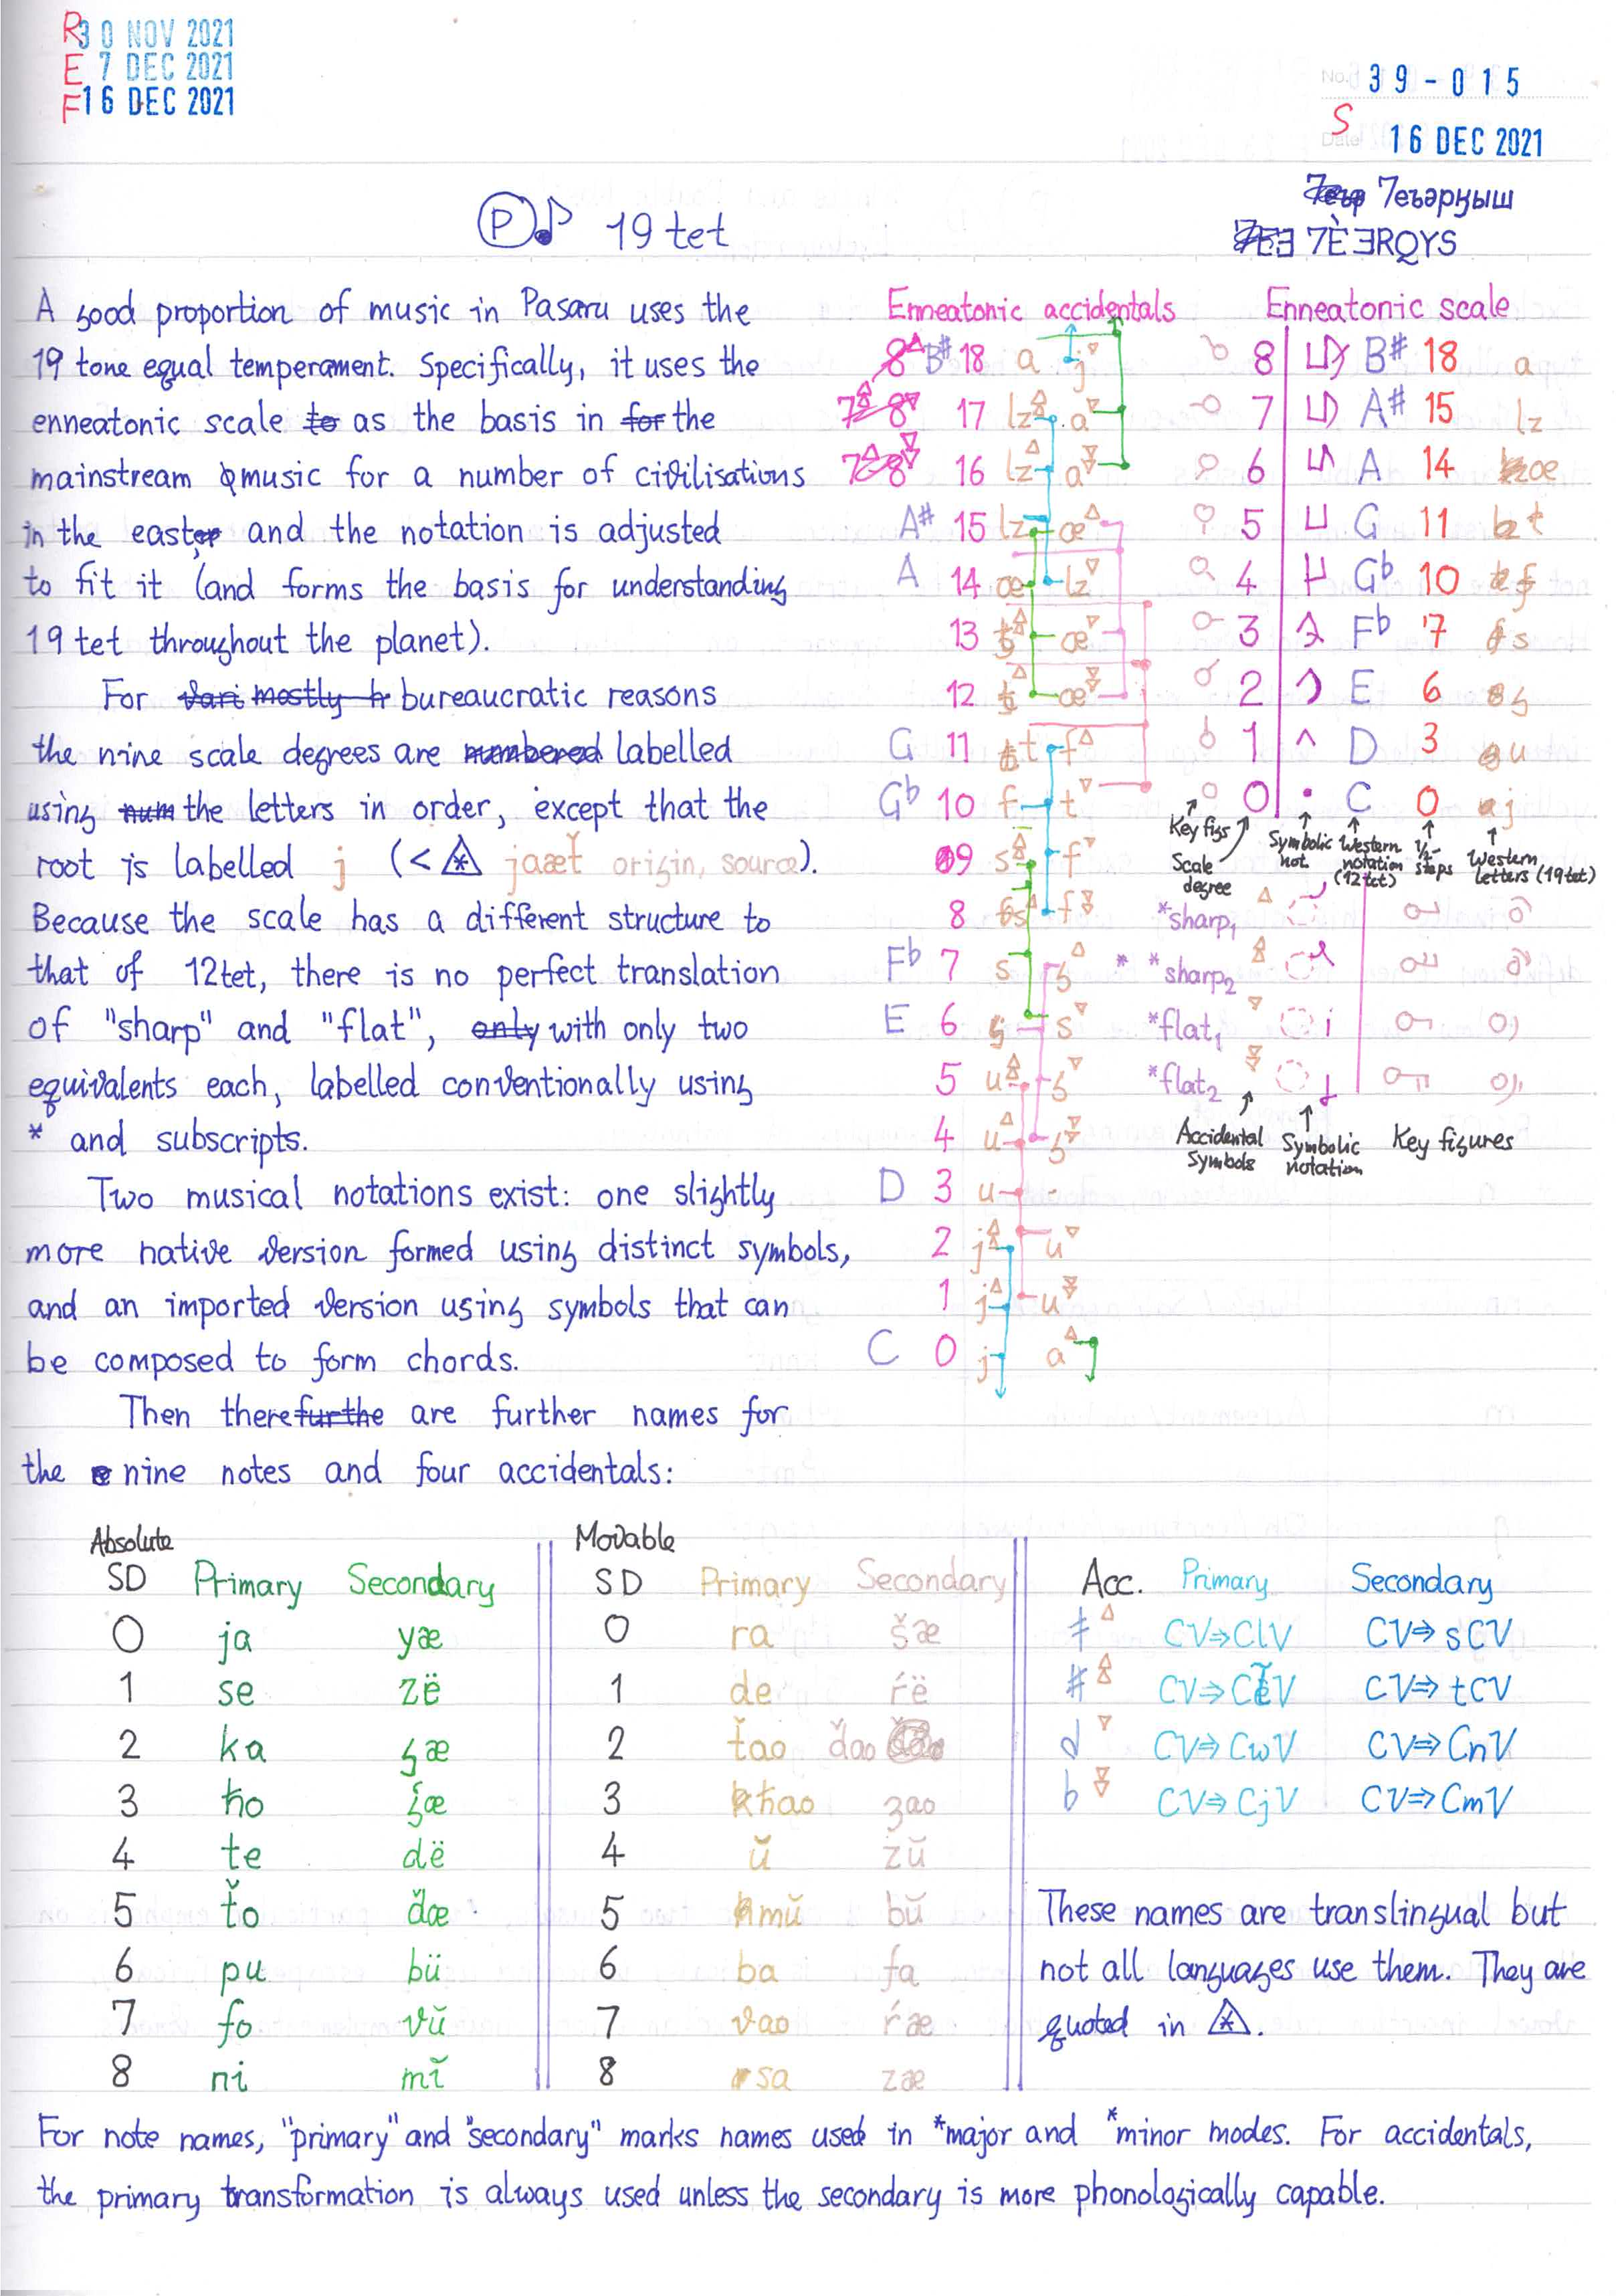 R 30 NOV 2021
E 7 DEC 2021
F 16 DEC 2021
No. 39-015
S
Date 16 DEC 2021
7еъәрӄыш
7È ƎRQYS
Ⓟ♪ 19 tet
A good proportion of music in Pasaru uses the
19 tone equal temperament. Specifically, it uses the
enneatonic scale to as the basis in for the
mainstream music for a number of civilisations
in the east and the notation is adjusted
to fit it (and forms the basis for understanding
19 tet throughout the planet).
For vari mostly h bureaucratic reasons
the nine scale degrees are numbered labelled
using num the letters in order, except that the
root is labelled j (< jaæt origin, source).
Because the scale has a different structure to
that of 12tet, there is no perfect translation
of "sharp" and "flat", only with only two
equivalents each, labelled conventionally using
* and subscripts.
Two musical notations exist: one slightly
more native version formed using distinct symbols,
and an imported version using symbols that can
be composed to form chords.
Then there furthe are further names for
the nine notes and four accidentals:
Enneatonic accidentals
B# 18 a j▽
17 lz a▽
16 lz△ a
A# 15 lz œ△
A 14 œ lz▽
13 œ▽
12 œ
G 11 t f△
Gb 10 f t▽
9 s f▽
8 s△ f
Fb 7 s
E 6 s▽
5 u
4 u△
D 3 u
2 j u▽
1 j△ u
C 0 j a△
Enneatonic scale
8 B# 18 a
7 A# 15 lz
6 A 14 œ
5 G 11 t
4 Gb 10 f
3 Fb 7 s
2 E 6
1 D 3 u
0 • C 0 j
Key figs
Scale degree
Symbolic not.
Western notation (12tet)
½-steps
Western letters (19tet)
*sharp₁ △
*sharp₂
*flat₁ ▽
*flat₂
Accidental symbols
Symbolic notation
Key figures
Absolute
SD Primary Secondary
0 ja yæ
1 se zë
2 ka
3 ħo
4 te dë
5 ťo ďœ
6 pu bü
7 fo vŭ
8 ni mĭ
Movable
SD Primary Secondary
0 ra šæ
1 de ŕë
2 ťao ďao
3 ħao ʒao
4 ŭ zŭ
5 mŭ bŭ
6 ba fa
7 vao ŕæ
8 sa zæ
Acc. Primary Secondary
△ CV⇒ClV CV⇒sCV
# CV⇒CV CV⇒tCV
d ▽ CV⇒CwV CV⇒CnV
b CV⇒CjV CV⇒CmV
These names are translingual but
not all languages use them. They are
quoted in
For note names, "primary" and "secondary" marks names used in *major and *minor modes. For accidentals,
the primary transformation is always used unless the secondary is more phonologically capable.